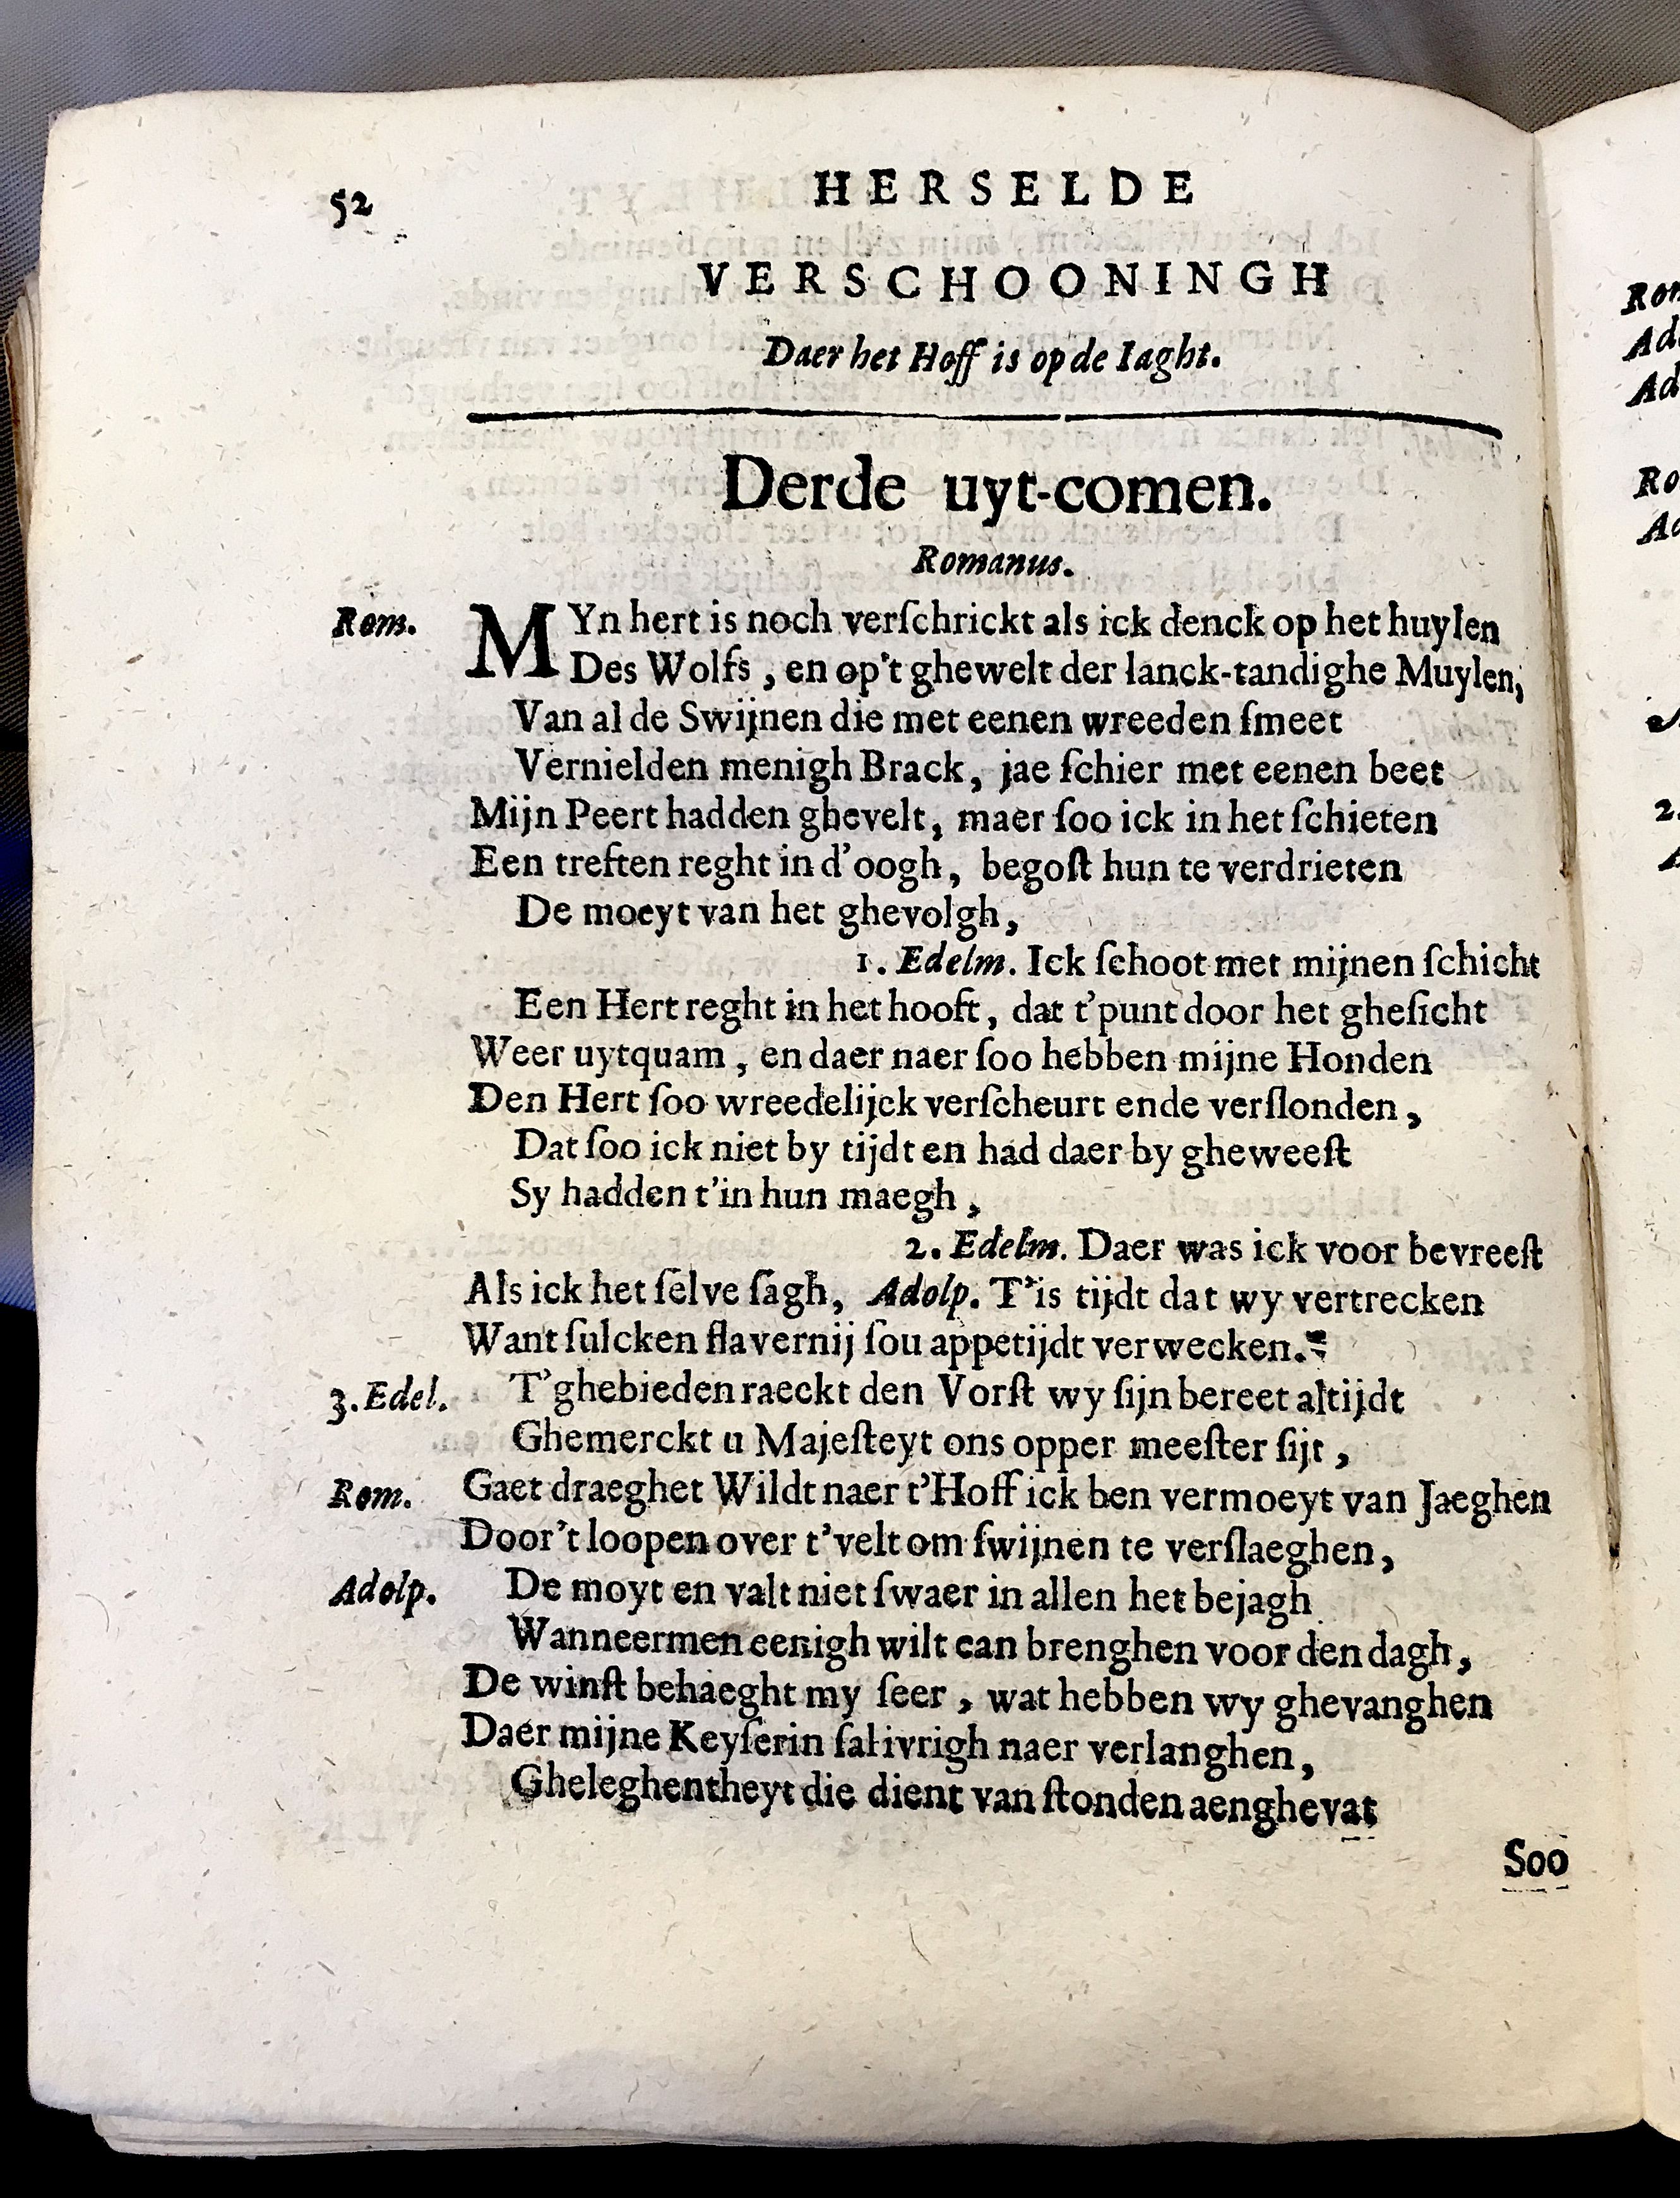 52
HERSELDE
VERSCHOONINGH
Daer het Hoff is op de Iaght.
Derde uyt-comen.
Romanus.
Rom. MYn hert is noch verſchrickt als ick denck op het huylen
Des Wolfs , en op't ghewelt der lanck-tandighe Muylen,
Van al de Swijnen die met eenen wreeden ſmeet
Vernielden menigh Brack, jae ſchier met eenen beet
Mijn Peert hadden ghevelt, maer ſoo ick in het ſchieten
Een treften reght in d'oogh, begoſt hun te verdrieten
De moeyt van het ghevolgh,
1. Edelm. Ick ſchoot met mijnen ſchicht
Een Hert reght in het hooft, dat t'punt door het gheſicht
Weer uytquam , en daer naer ſoo hebben mijne Honden
Den Hert ſoo wreedelijck verſcheurt ende verſlonden ,
Dat ſoo ick niet by tijdt en had daer by gheweeſt
Sy hadden t'in hun maegh ,
2. Edelm. Daer was ick voor bevreeſt
Als ick het ſelve ſagh, Adolp. T'is tijdt dat wy vertrecken
Want ſulcken ſlavernij ſou appetijdt verwecken.
3. Edel. T'ghebieden raeckt den Vorſt wy ſijn bereet altijdt
Ghemerckt u Majeſteyt ons opper meeſter ſijt ,
Rom. Gaet draeghet Wildt naer t'Hoff ick ben vermoeyt van Jaeghen
Door't loopen over t'velt om ſwijnen te verſlaeghen,
Adolp. De moyt en valt niet ſwaer in allen het bejagh
Wanneermen eenigh wilt can brenghen voor den dagh,
De winſt behaeght my ſeer , wat hebben wy ghevanghen
Daer mijne Keyſerin ſal ivrigh naer verlanghen,
Gheleghentheyt die dient van ſtonden aenghevat
Soo
Rom
Ad
Ad
Ro
Ad
2.